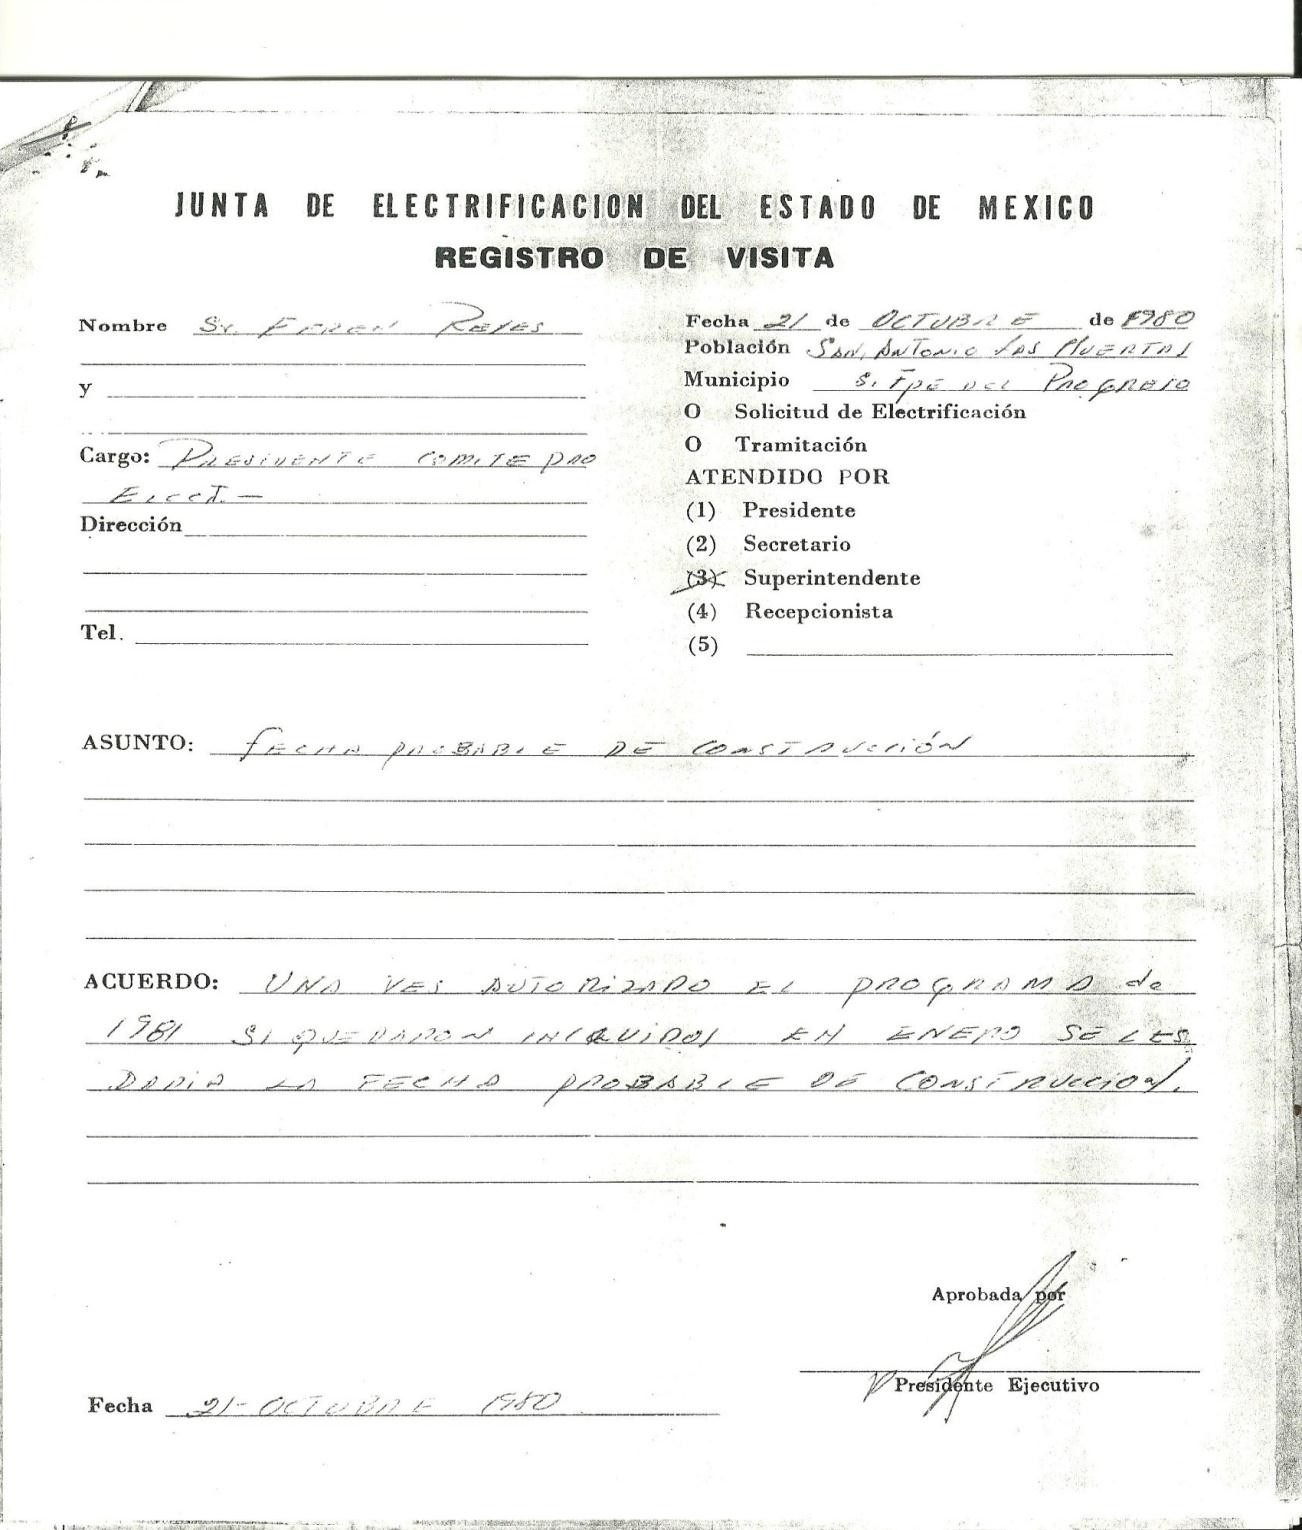 JUNTA DE ELECTRIFICACION DEL ESTADO DE MEXICO
REGISTRO DE VISITA
Nombre Sr. EFREN REYES
y
Cargo: PRESIDENTE COMITE PRO
ELECT.-
Dirección
Tel.
Fecha 21 de OCTUBRE de 1980
Población SAN ANTONIO LAS HUERTAS
Municipio S. FPE DEL PROGRESO
O Solicitud de Electrificación
O Tramitación
ATENDIDO POR
(1) Presidente
(2) Secretario
(3) Superintendente
(4) Recepcionista
(5)
ASUNTO: FECHA PROBABLE DE CONSTRUCCIÓN
ACUERDO: UNA VES AUTORIZADO EL PROGRAMA de
1981 SI QUEDARON INCLUIDOS EN ENERO SE LES
DARIA LA FECHA PROBABLE DE CONSTRUCCION.
Aprobada por
Presidente Ejecutivo
Fecha 21-OCTUBRE 1980